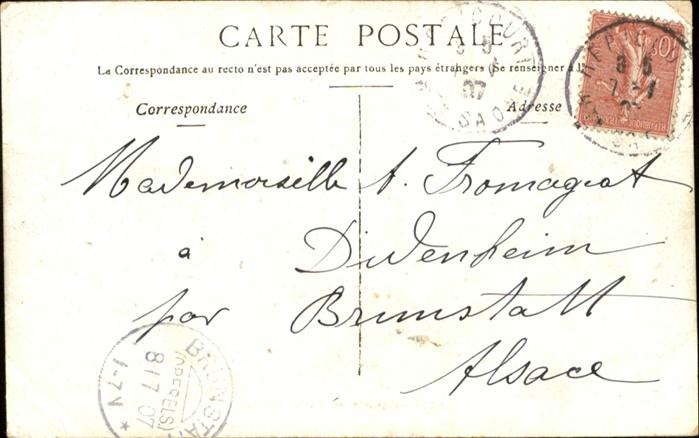 CARTE POSTALE
La Correspondance au recto n'est pas acceptée par tous les pays étrangers (Se renseigner à la
Correspondance
Adresse
Mademoiselle A. Fromageat
à Didenheim
par Brunstatt
Alsace
BRUNSTATT
(OBERELS)
8 17 07
1-7N
10